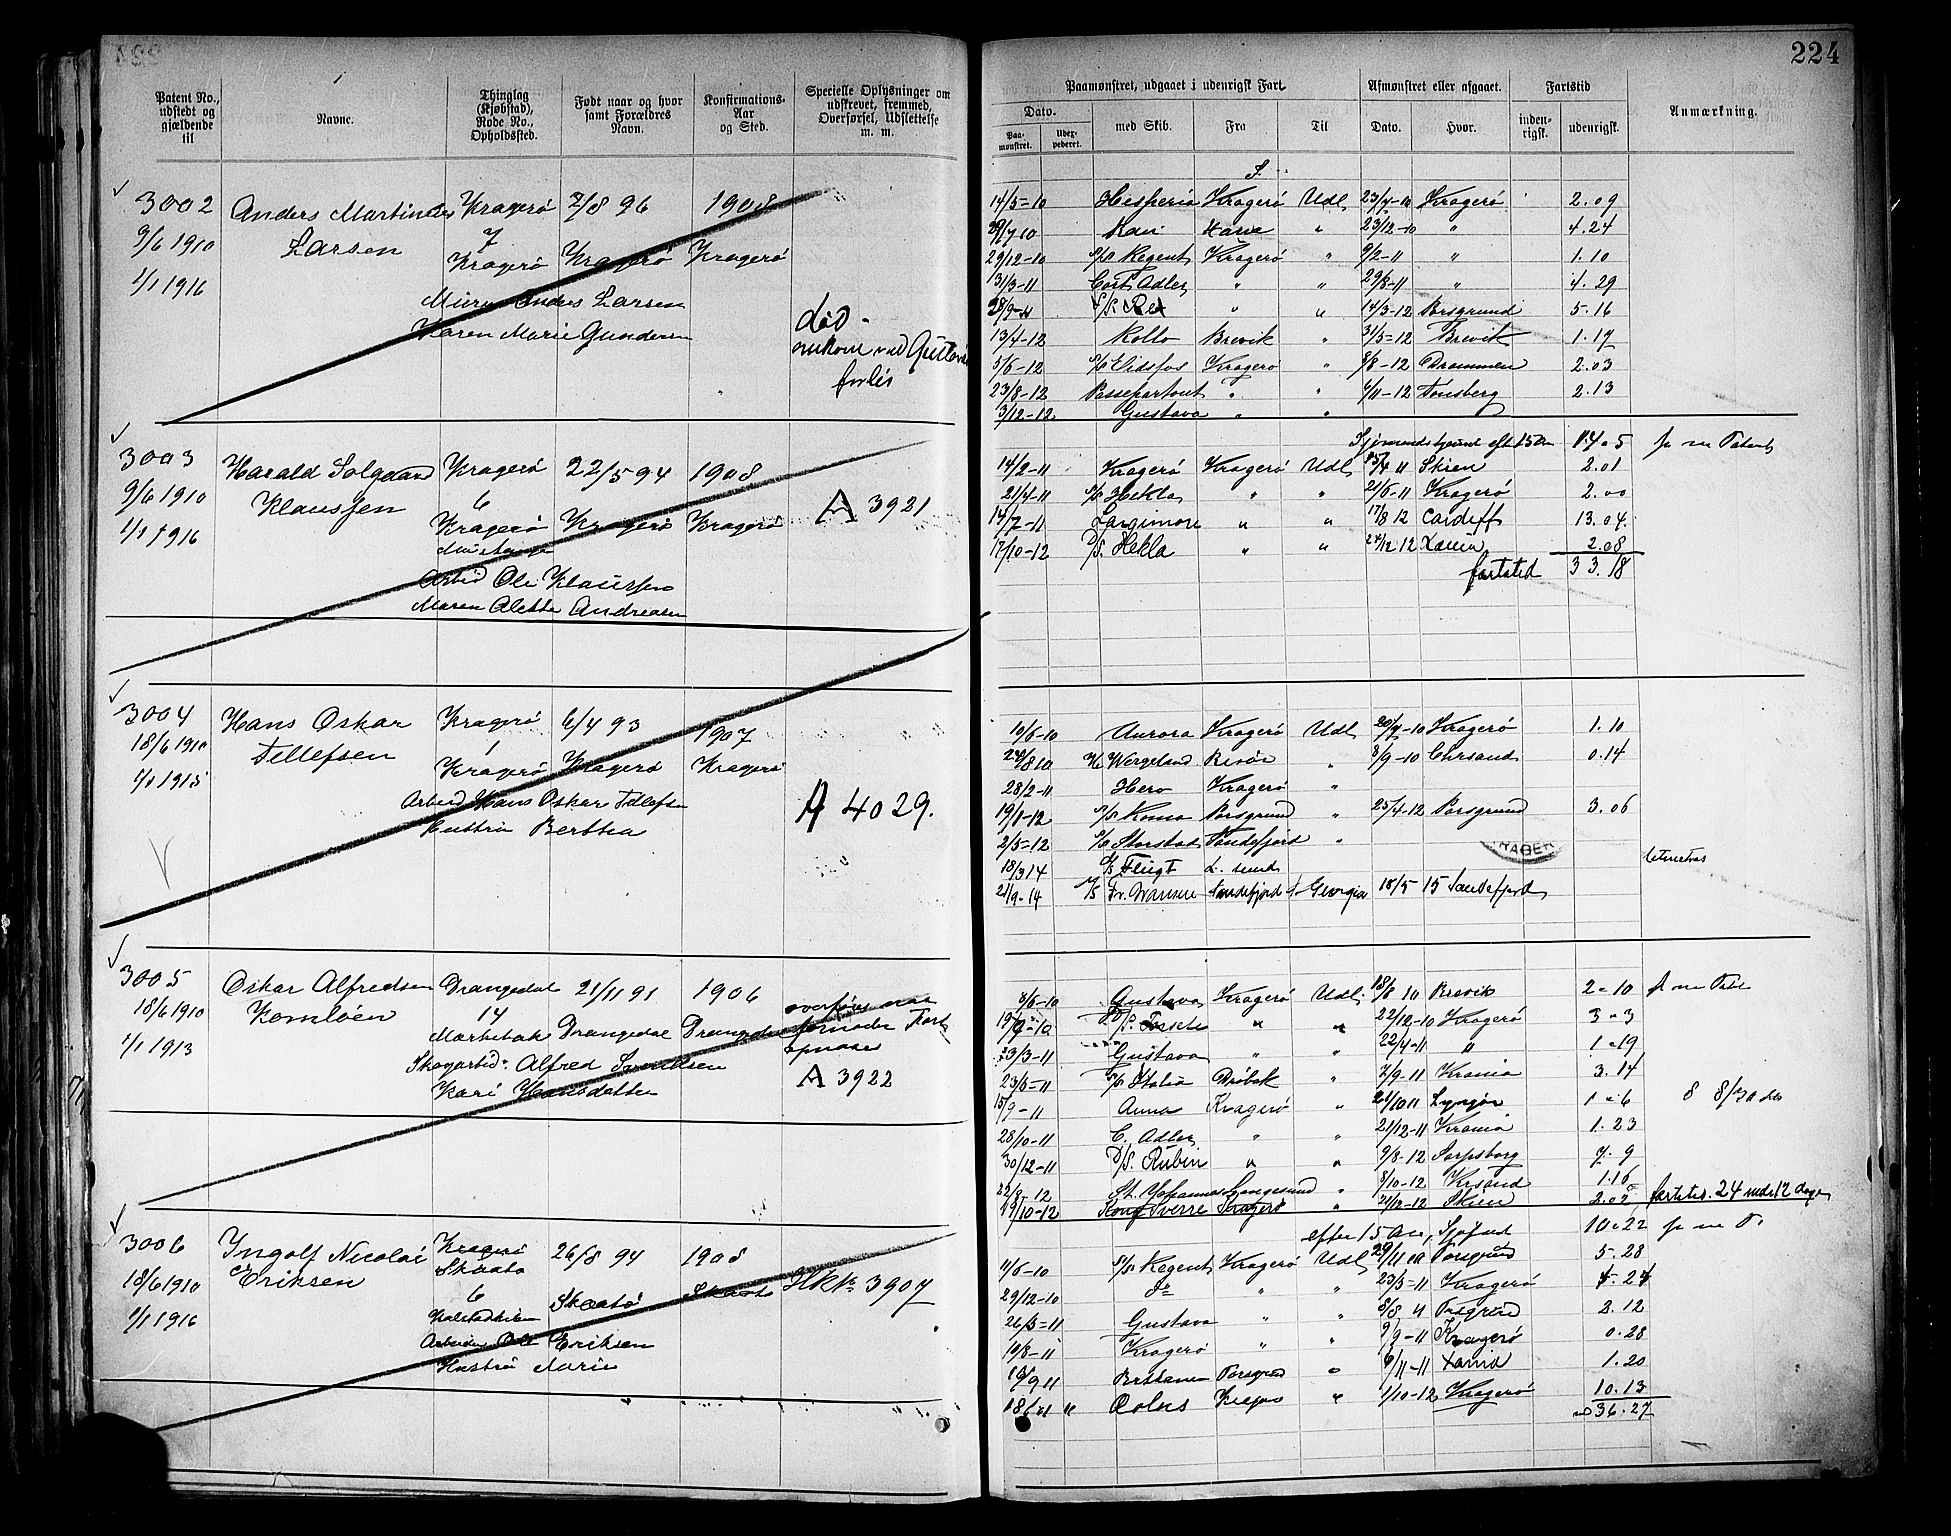 224
Patent No., udstedt og gjældende til
Navne.
Thinglag (Kjøbstad), Rode No., Opholdssted.
Født naar og hvor samt Forældres Navn.
Konfirmations-Aar og Sted.
Specielle Oplysninger om udskrevet, fremmed, Overførsel, Udslettelse m. m.
Paamønstret, udgaaet i udenrigsk Fart
Afmønstret eller afgaaet.
Fartstid
Anmærkning.
Dato.
Paa-mønstret.
med Skib.
Fra
Til
Dato.
Hvor.
inden-rigsk.
udenrigsk.
3002 Anders Martinius Kragerø 2/8 96 1908
9/6 1910 Larsen 7
Kragerø Kragerø Kragerø
1/1 1916
Murer Anders Larsen
Karen Marie Gundersen
død
omkom ved Gustavas forlis
14/5-10 Hesperia Kragerø Udl 23/7-10 Kragerø 2.09
Kari " 23/12-10 " 4.24
29/12-10 S/S Regent Kragerø " 9/2-11 " 1.10
31/3-11 Cort Adler " " 29/8-11 " 4.29
" " 14/3-12 Porsgrund 5-16
13/4-12 Rollo Brevik " 31/5-12 Brevik 1.17
5/6-12 Kragerø " 8/8-12 Drammen 2.03
23/8-12 Passepartout " " 6/11-12 Tønsberg 2.13
3/12-12 Gustava " "
3003 Harald Solgaard Kragerø 22/5-94 1908
9/6 1910 Klaussen 6
Kragerø Kragerø Kragerø
1/1 1916
A 3921
Arbeid Ole Klaussen
Maren Alette Andreasen
14/2-11 Kragerø Kragerø Udl Skien 2.01
21/4-11 S/S Hekla " " 21/6-11 Kragerø 2.00
14/7-11 Largimore " " 17/8 12 Cardiff 13.04
17/10-12 D/S. Hekla " " 24/12 12 2.08
fartstid 33.18
3004 Hans Oskar Kragerø 6/4 93 1907
18/6 1910 Tellefsen 1
Kragerø Kragerø Kragerø
1/1 1915
Arbeid Hans Oskar Tellefsen
Hustru Berthea
A 4029.
10/6-10 Aurora Kragerø Udl 20/7-10 Kragerø 1.10
H Wergeland Risør " 8/9-10 Chrsand 0.14
28/2-11 Hero Kragerø "
19/1-12 S/S Roma Porsgrund " 25/4-12 Porsgrund 3.06
2/5-12 S/S Storstad Sandefjord "
18/3 14 S/S Flugt L. sund
21/9-14 Sandefjord S. Georgia 18/5-15 Sandefjord
KRAGER
3005 Oskar Alfredsen Drangedal 21/11 91 1906
18/6 1910 Komløen 14
Drangedal Drangedal
1/1 1913
Skogarbid. Alfred Svendsen
Kari Hansdatter
A 3922
3/6-10 Gustava Kragerø Udl. 18/8 10 Brevik 2-10
" " 22/12-10 Kragerø 3-3
23/3-11 Gustava " " 22/4-11 " 1-19
23/5-11 S/S Italia Drøbak " 7/9-11 Krania 3.14
15/9-11 Anna Kragerø " 21/10 11 Lyngør 1-6
28/10-11 C. Adler " " 21/12-11 Krania 1.23
30/12-11 D/S. Rubin " " 9/8-12 Sarpsborg 7.9
22/8-12 St. Johannes Langesund " 8/10-12 Krsand 1.16
19/10-12 Kong Sverre Kragerø " 21/12-12 Skien
fartstid. 24 mdr 12 dage
3006 Ingolf Nicolai Kragerø 26/8 94 1908
18/6 1910 Eriksen Skaatø
6
Skaatø Skaatø
1/1 1916
Arbeider Ole Eriksen
Hustru Marie
3907
efter 15 Aar, Sjøfart 10.22
11/6-10 S/S Regent Kragerø Udl 29/11 10 Porsgrund 5.28
29/12-10 do " " 23/5-11 Kragerø 4.24
26/5-11 Gustava " " 8/8 11 Porsgrund 2.12
10/8-11 Kragerø " " 9/9-11 Kragerø 0.28
19/9 11 Porsgrund " 6/11-11 1.20
" 1/10-12 Kragerø 10.13
36.27